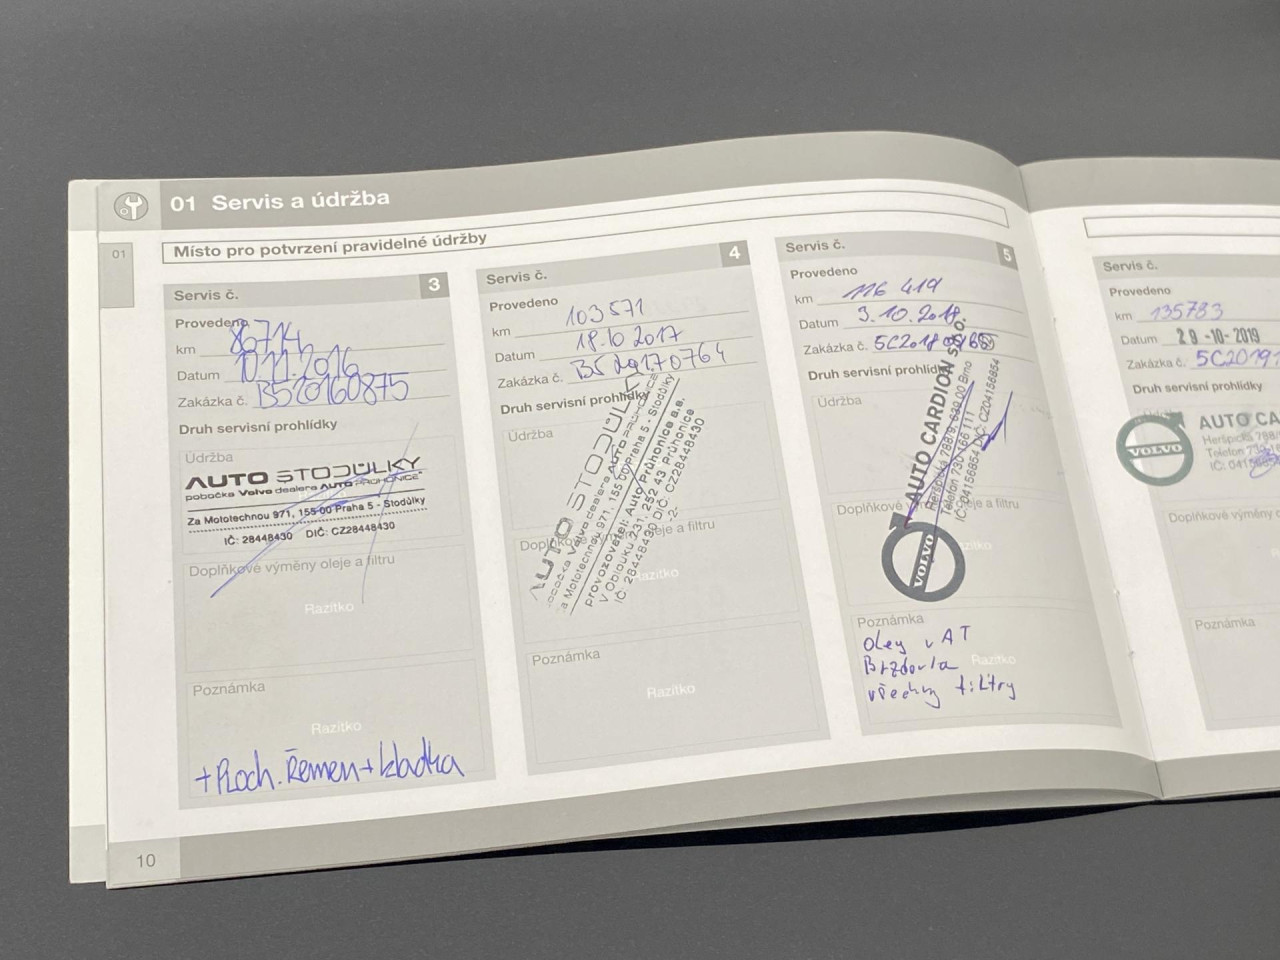 01 Servis a údržba
01
Místo pro potvrzení pravidelné údržby
Servis č. 3
Provedeno
km 86714
Datum 10.11.2016
Zakázka č. B520160875
Druh servisní prohlídky
Údržba
AUTO STODŮLKY
pobočka Volvo dealera AUTO PRŮHONICE
Za Mototechnou 971, 155 00 Praha 5 - Stodůlky
IČ: 28448430 DIČ: CZ28448430
Doplňkové výměny oleje a filtru
Razítko
Poznámka
Razítko
+Ploch. Řemen + kladka
Servis č. 4
Provedeno
km 103571
Datum 18.10 2017
Zakázka č.
Druh servisní prohlídky
Údržba
AUTO STODŮLKY
pobočka Volvo dealera AUTO PRŮHONICE
Za Mototechnou 971, 155 00 Praha 5 - Stodůlky
provozovatel: Auto Průhonice a.s.
V Oblouku 731, 252 43 Průhonice
IČ: 28448430 DIČ: CZ28448430
-2-
Doplňkové výměny oleje a filtru
Razítko
Poznámka
Razítko
Servis č. 5
Provedeno
km 116 419
Datum 3.10.2018
Zakázka č.
Druh servisní prohlídky
Údržba
AUTO CARDION s.r.o.
Heršpická 788/9, 639 00 Brno
Telefon 730 166 111
IČ: 04156854 DIČ: CZ04156854
VOLVO
Doplňkové výměny oleje a filtru
Razítko
Poznámka
Olej v AT
Razítko
Brzdovka
všechny filtry
10
Servis č.
Provedeno
km 135783
Datum 29-10-2019
Zakázka č. 5C2019
Druh servisní prohlídky
VOLVO
AUTO CA
Heršpická 788/
Telefon 730
IČ: 041568
Doplňkové výměny o
Poznámka